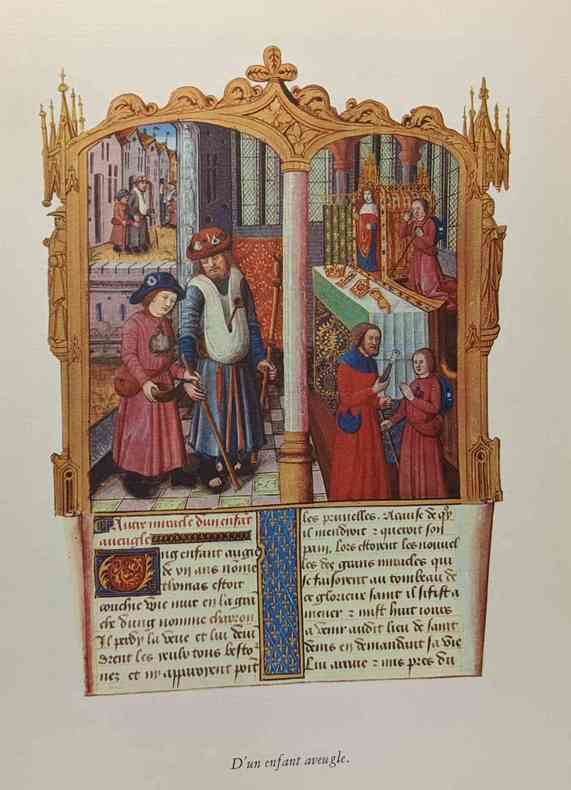 Autre miracle dun enfãt
aueugle
Ung enfant aagie
de vii ans nõme
thomas estoit
couchie vne nuit en la grã
che dung nomme
Il perdy la veue et lui
drent les yeulx tous
nez et ny apparoient poĩt
les prunelles. A cause de qy
il mendioit z queroit son
pain, lors estoient les nouuel
les des grans miracles qui
se faisoient au tombeau de
ce glorieux saint il sisist a
mener z mist huit iours
a venir audit lieu de saint
denis en demandant sa vie
Lui arriue z mis pres du
D'un enfant aveugle.